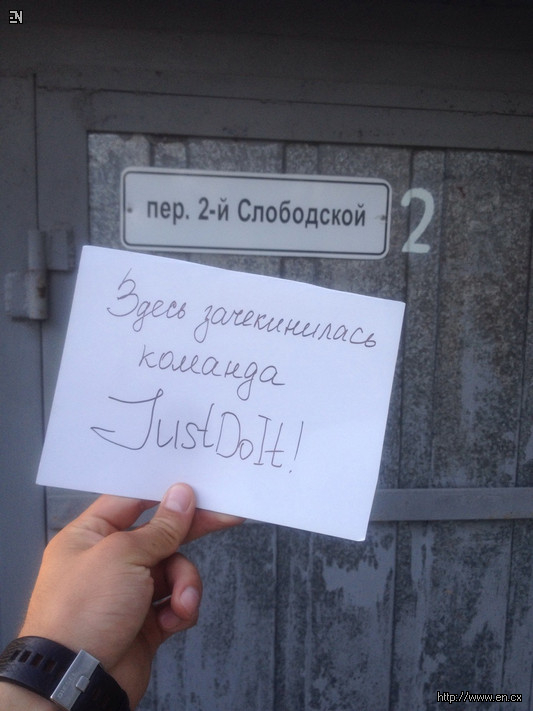 EN
пер. 2-й Слободской
2
Здесь зачекинилась
команда
JustDoIt!
http://www.en.cx